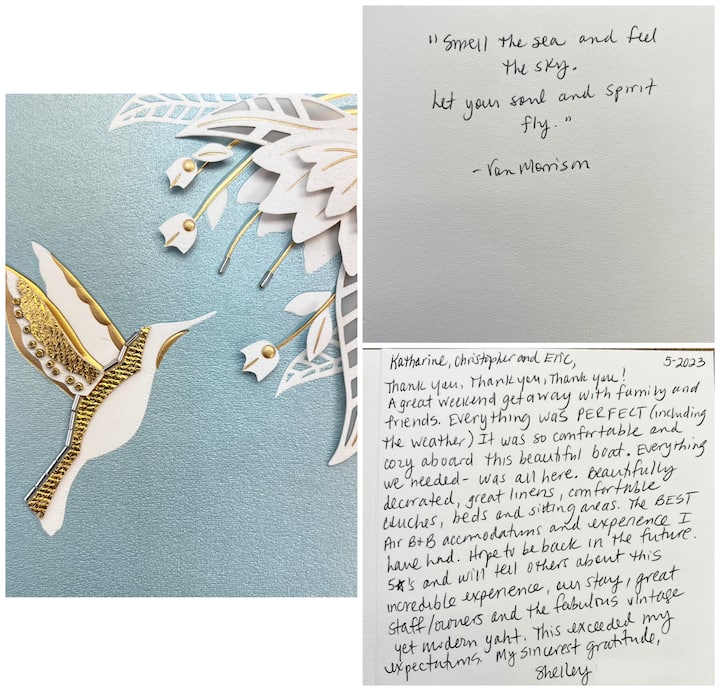 "Smell the sea and feel
the sky.
Let your soul and spirit
fly."
- Van Morrison
Katharine, Christopher and Eric,
5-2023
Thank you, Thank you, Thank you!
A great weekend getaway with family and
friends. Everything was PERFECT (including
the weather) It was so comfortable and
cozy aboard this beautiful boat. Everything
we needed- was all here. Beautifully
decorated, great linens, comfortable
couches, beds and sitting areas. The BEST
Air B+B accomodations and experience I
have had. Hope to be back in the future.
5★'s and will tell others about this
incredible experience, our stay, great
staff/owners and the fabulous vintage
yet modern yaht. This exceeded my
expectations. My sincerest gratitude,
Shelley